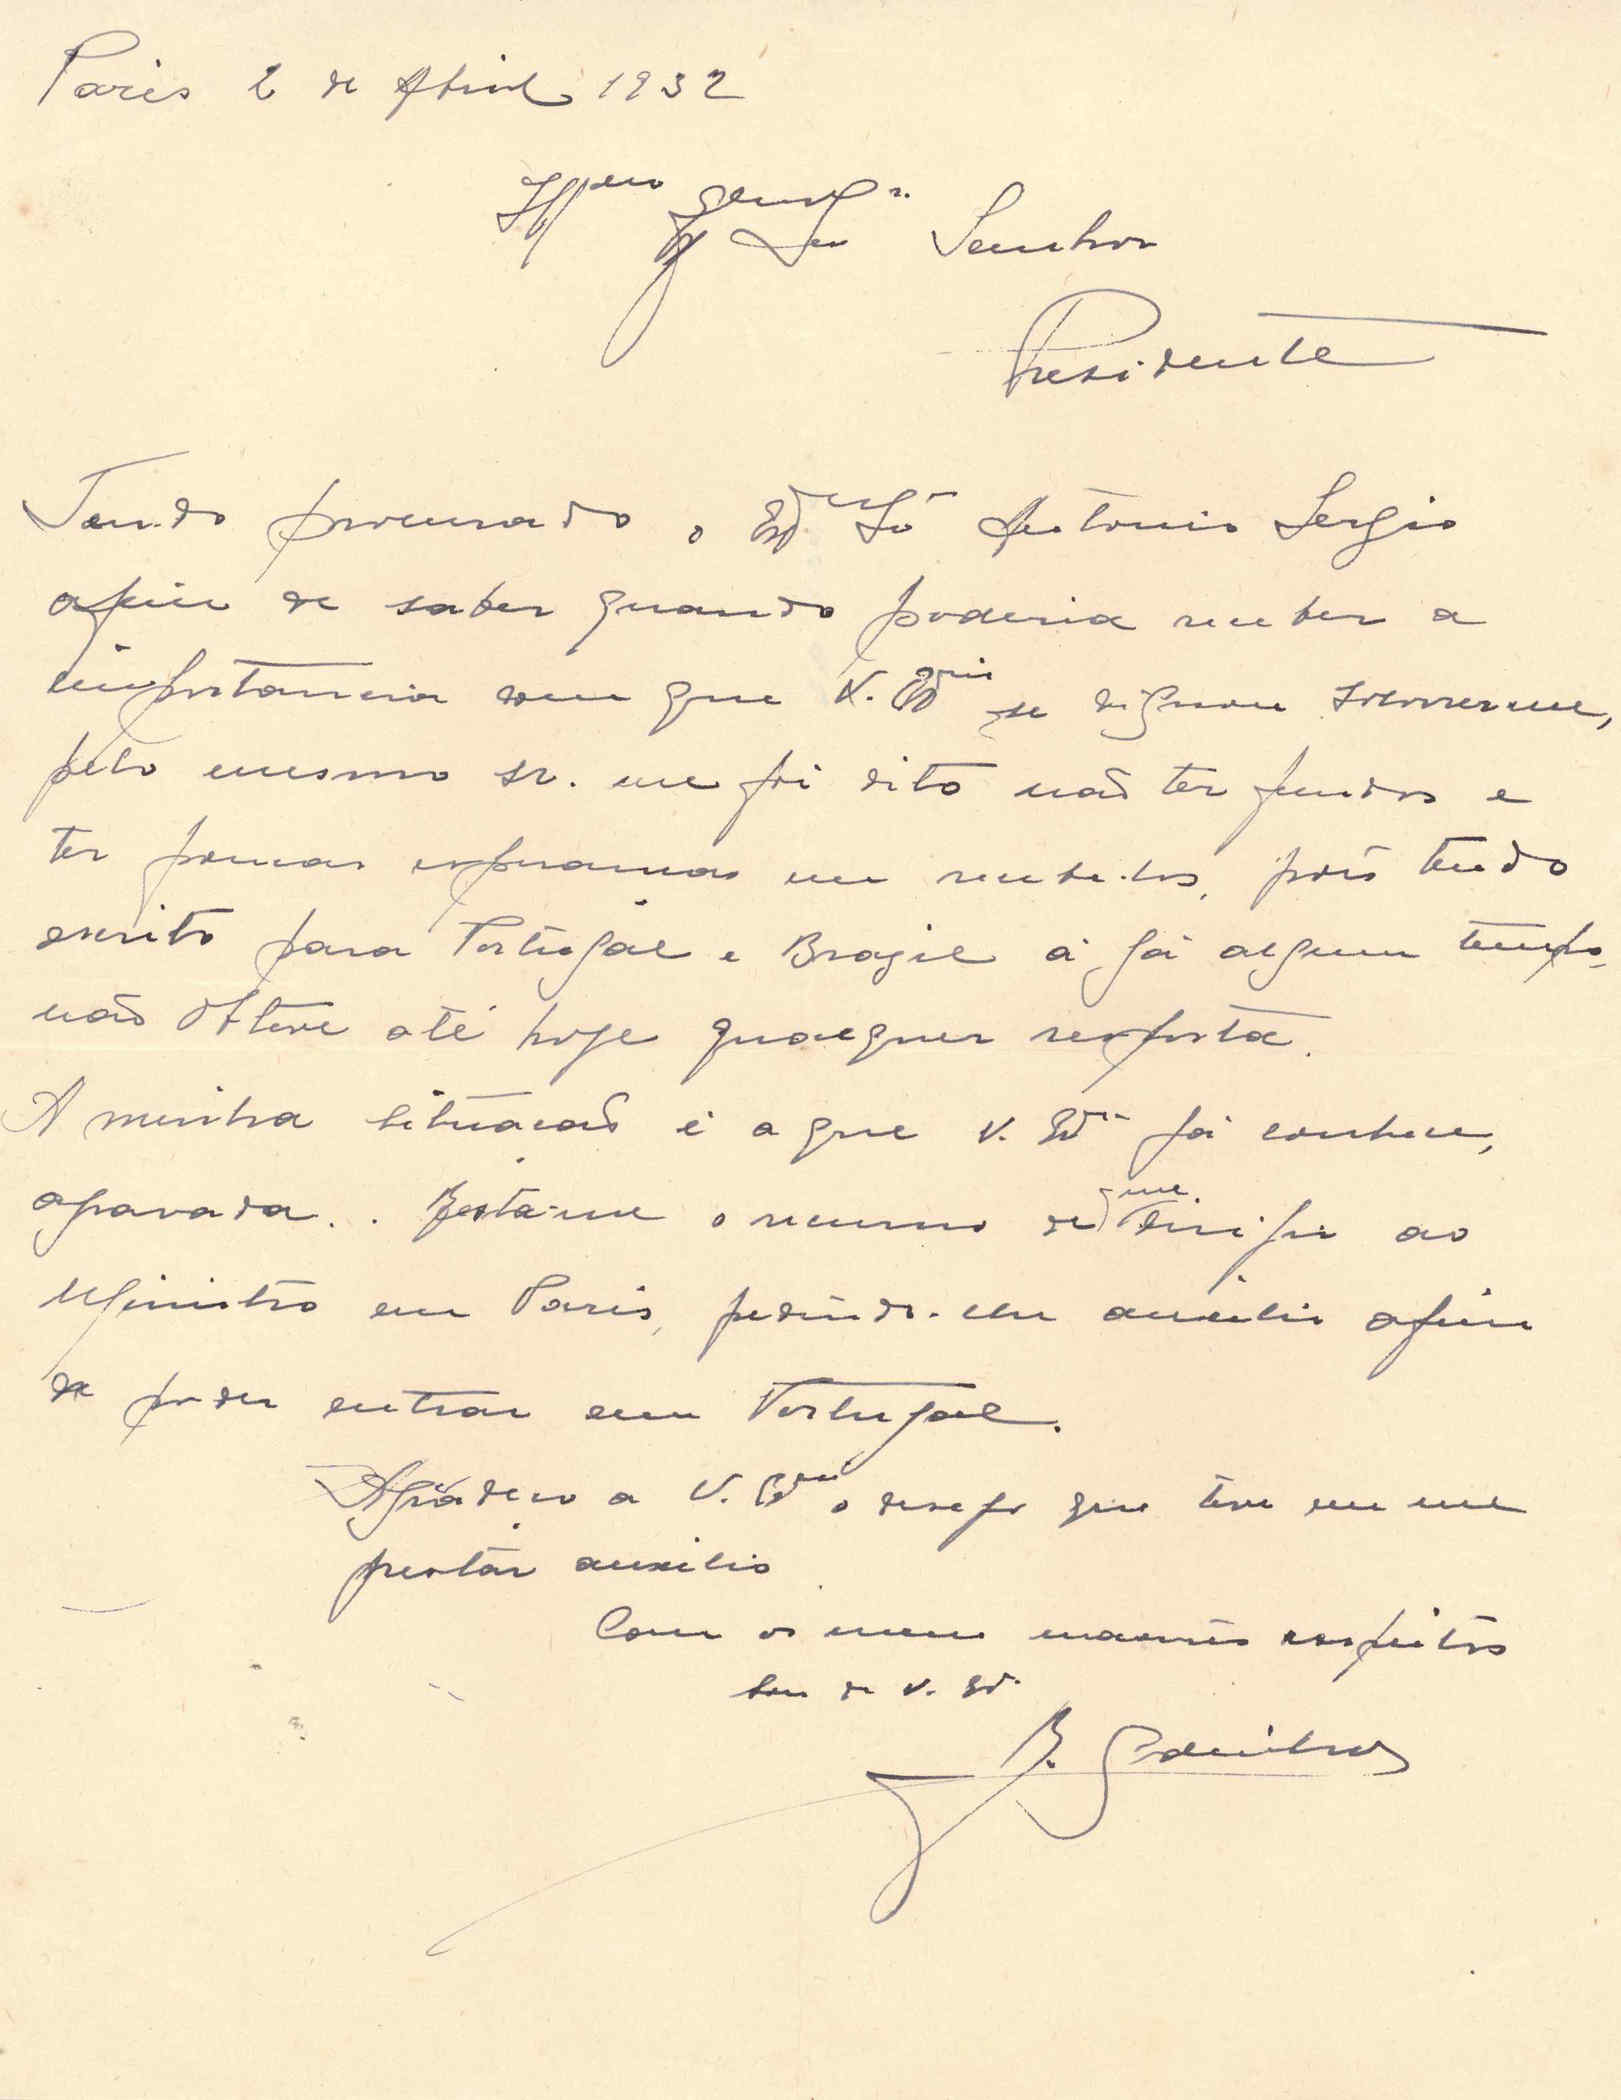 Paris 2 de Abril 1932
Senhor
Presidente
Tendo procurado o Exmo Sr Antonio Sergio
afim de saber quando poderia receber a
importancia com que V. Excia se dignou socorrer-me,
pelo mesmo sr. me foi dito não ter fundos e
ter poucas esperanças em recebe-los, pois tendo
escrito para Portugal e Brazil á já algum tempo,
não obteve até hoje qualquer resposta.
A minha situacão é a que V. Exa já conhece,
agravada.. Resta-me o recurso de me dirigir ao
Ministro em Paris, pedindo-lhe auxilio afim
de poder entrar em Portugal.
Agradeco a V. Excia o desejo que teve em me
prestar auxilio
Com os meus maiores respeitos
Sou de V. Exa